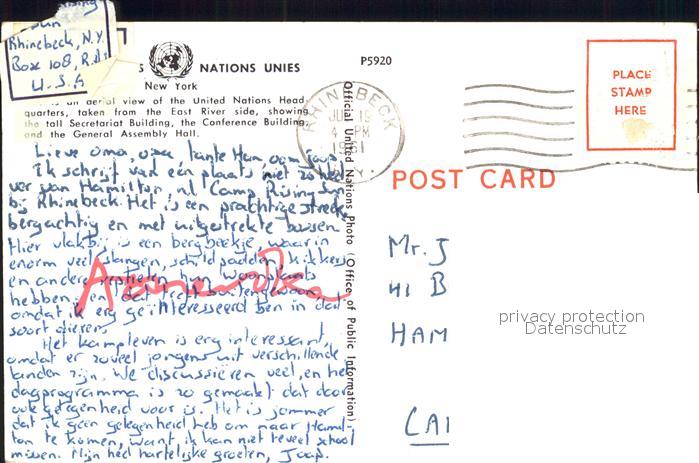 Rising
Sun
Rhinebeck, N.Y.
Box 108, R.D.1
U.S.A
S NATIONS UNIES
P5920
New York
an aerial view of the United Nations Head-
quarters, taken from the East River side, showing
the tall Secretariat Building, the Conference Building,
and the General Assembly Hall.
Lieve Oma, opa, tante Ham, oom
Ik schrijf van een plaats niet zo heel
ver van Hamilton, nl. Camp Rising Sun
bij Rhinebeck. Het is een prachtige streek,
bergachtig en met uitgestrekte bossen.
Hier vlakbij is een bergbeekje, waarin
enorm veel slangen, schildpadden, kikkers
en andere reptielen hun woonplaats
hebben, en dat treft buitengewoon,
omdat ik erg geïnteresseerd ben in dat
soort dieren.
Het kampleven is erg interessant,
omdat er zoveel jongens uit verschillende
landen zijn. We discussiëren veel, en het
dagprogramma is zo gemaakt dat daar
ook gelegenheid voor is. Het is jammer
dat ik geen gelegenheid heb om naar Hamil-
ton te komen, want ik kan niet teveel school
missen. Mijn heel hartelijke groeten, Jaap.
Official United Nations Photo (Office of Public Information)
RHINEBECK
19
PM
1961
N.Y.
PLACE
STAMP
HERE
POST CARD
Mr. J
41 B
HAM
CA
privacy protection
Datenschutz